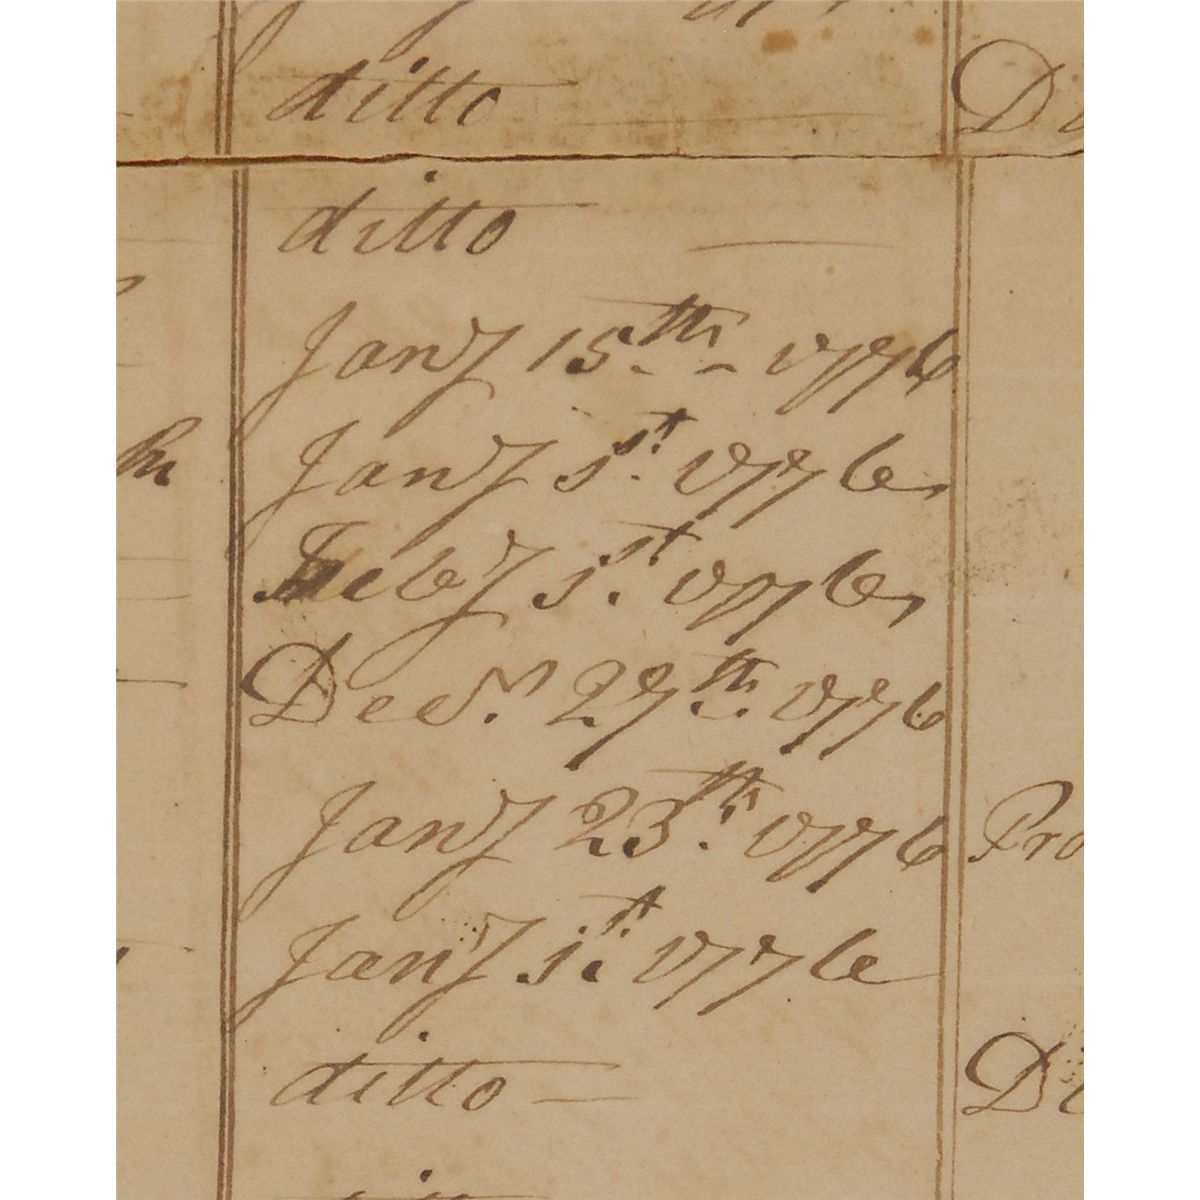 ditto
D
ditto
Jany 15th - 1776
Jany 1st. 1776
Feby 1st. 1776
Decr. 27th. 1776
Jany 23th. 1776
Pro
Jany 1st. 1776
ditto
Di